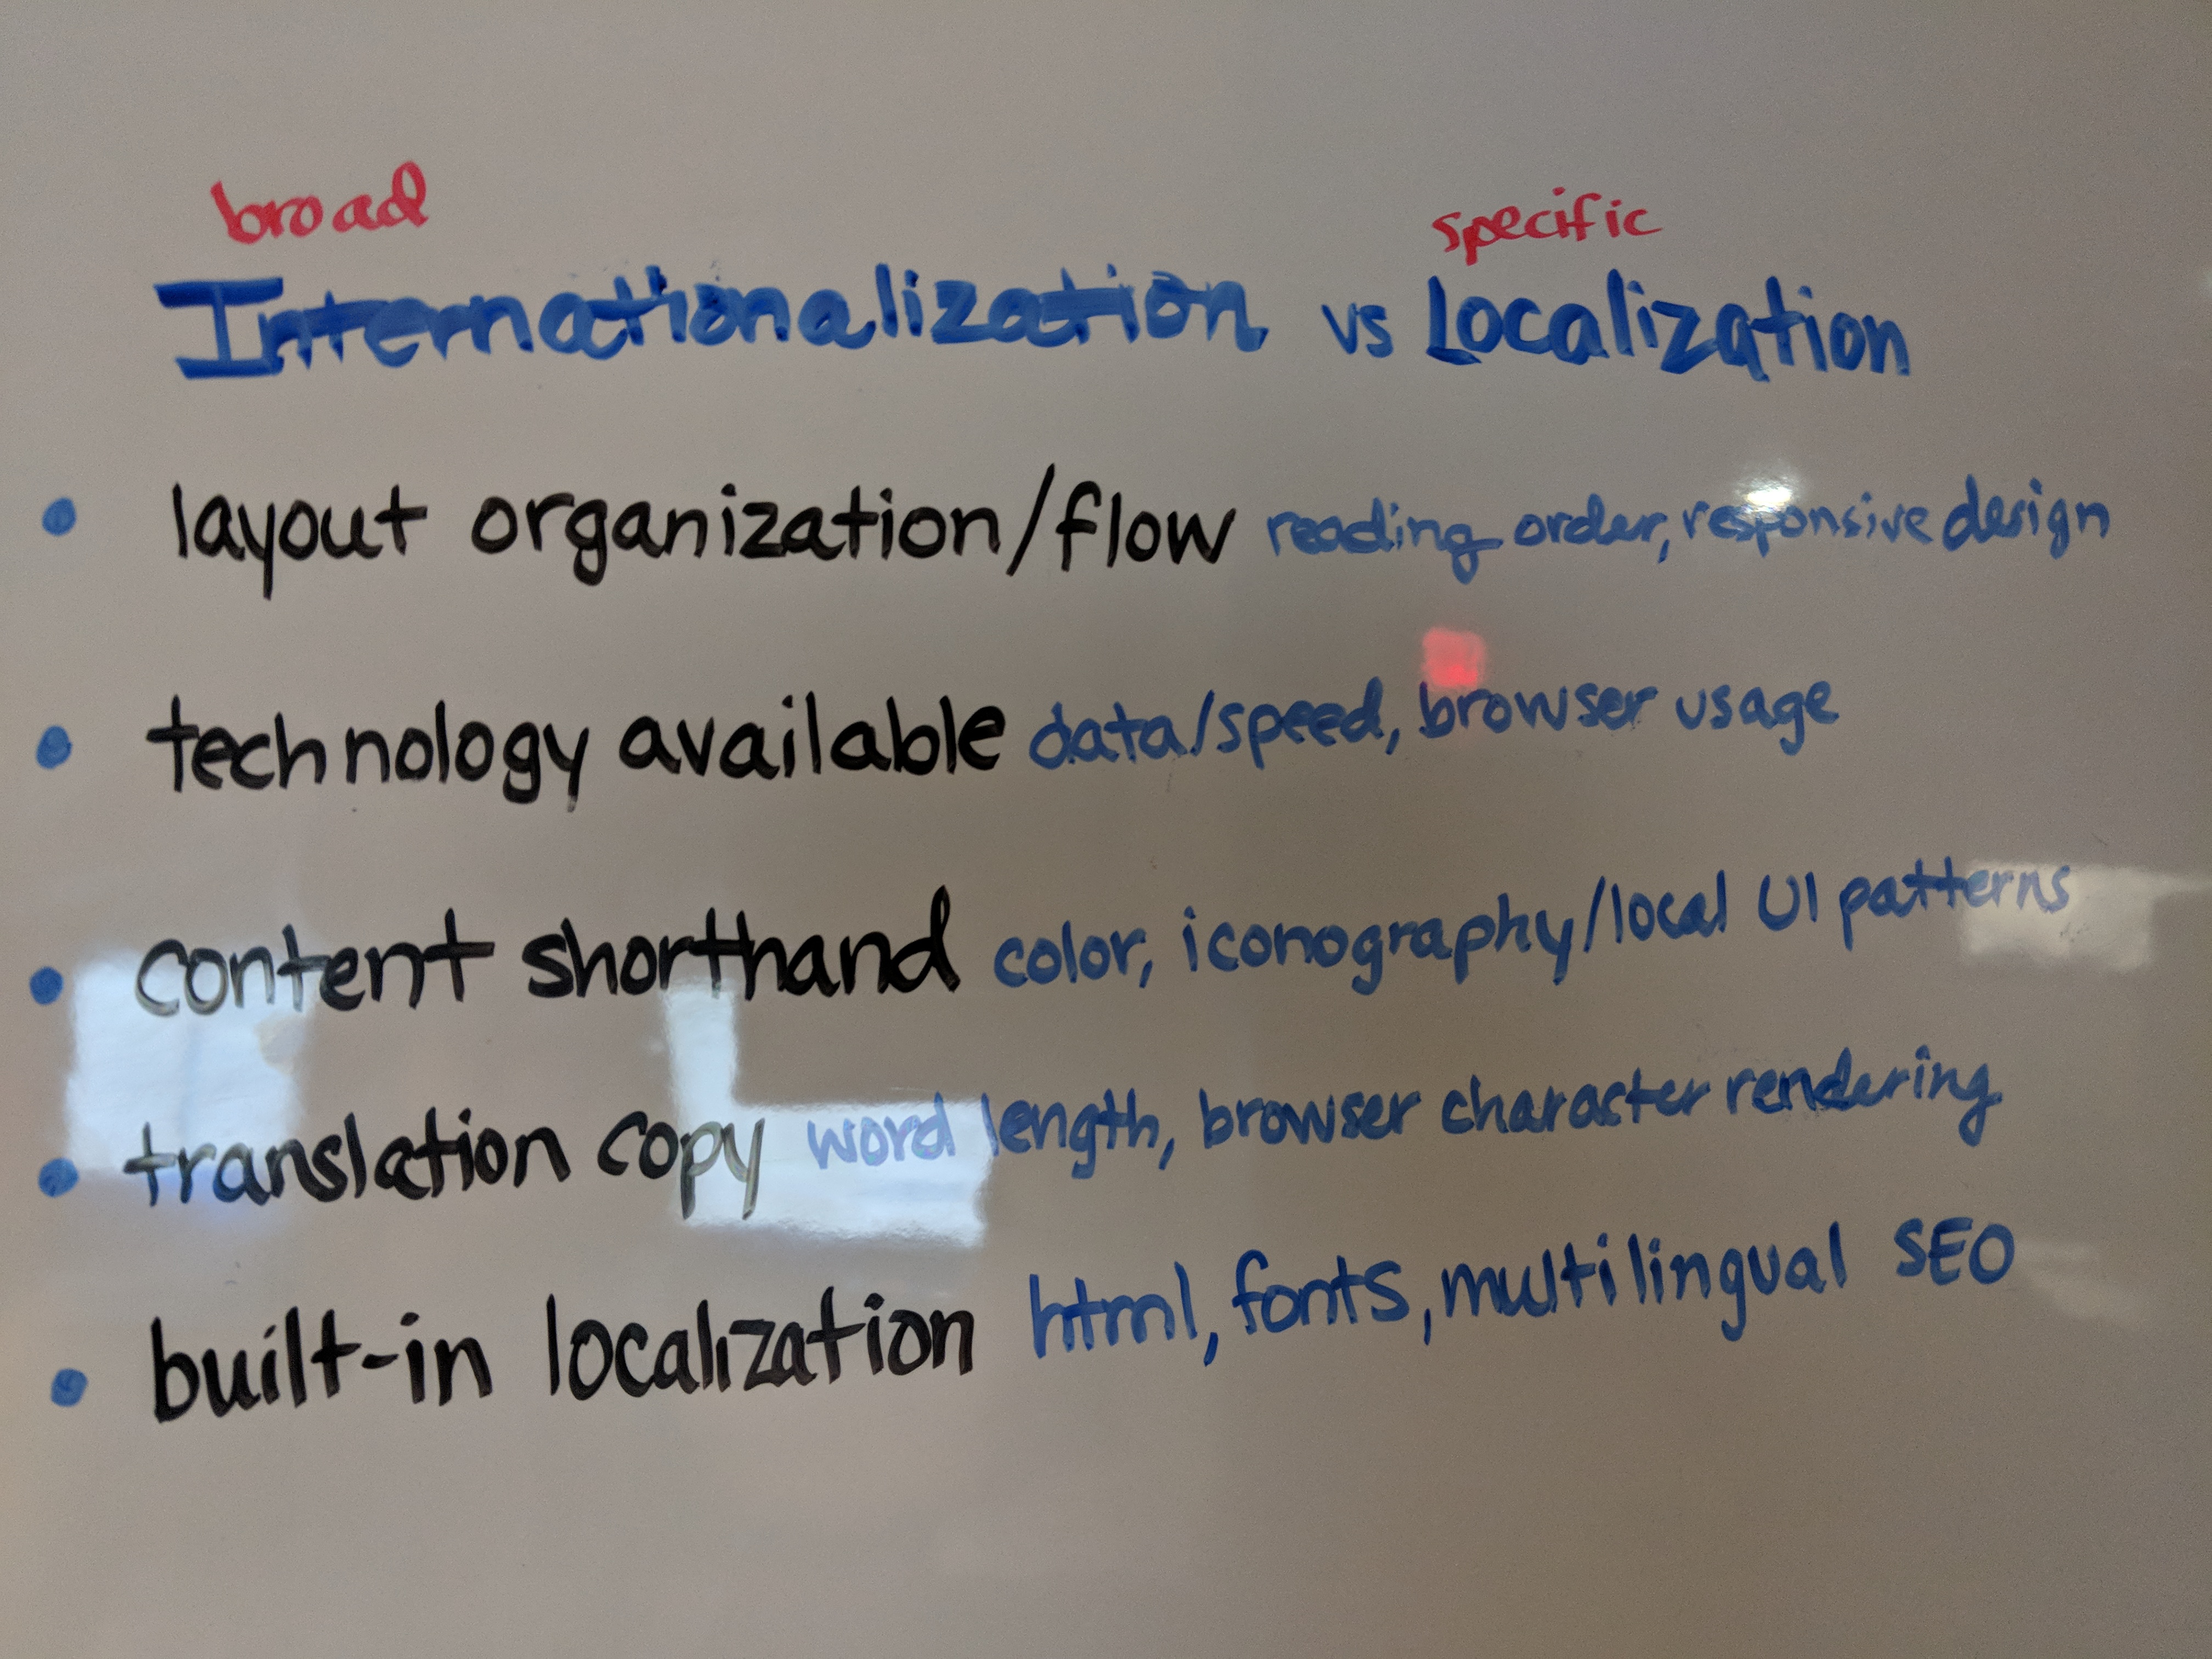 broad specific
Internationalization vs Localization
• layout organization/flow reading order, responsive design
• technology available data/speed, browser usage
• content shorthand color, iconography/local UI patterns
• translation copy word length, browser character rendering
• built-in localization html, fonts, multilingual SEO